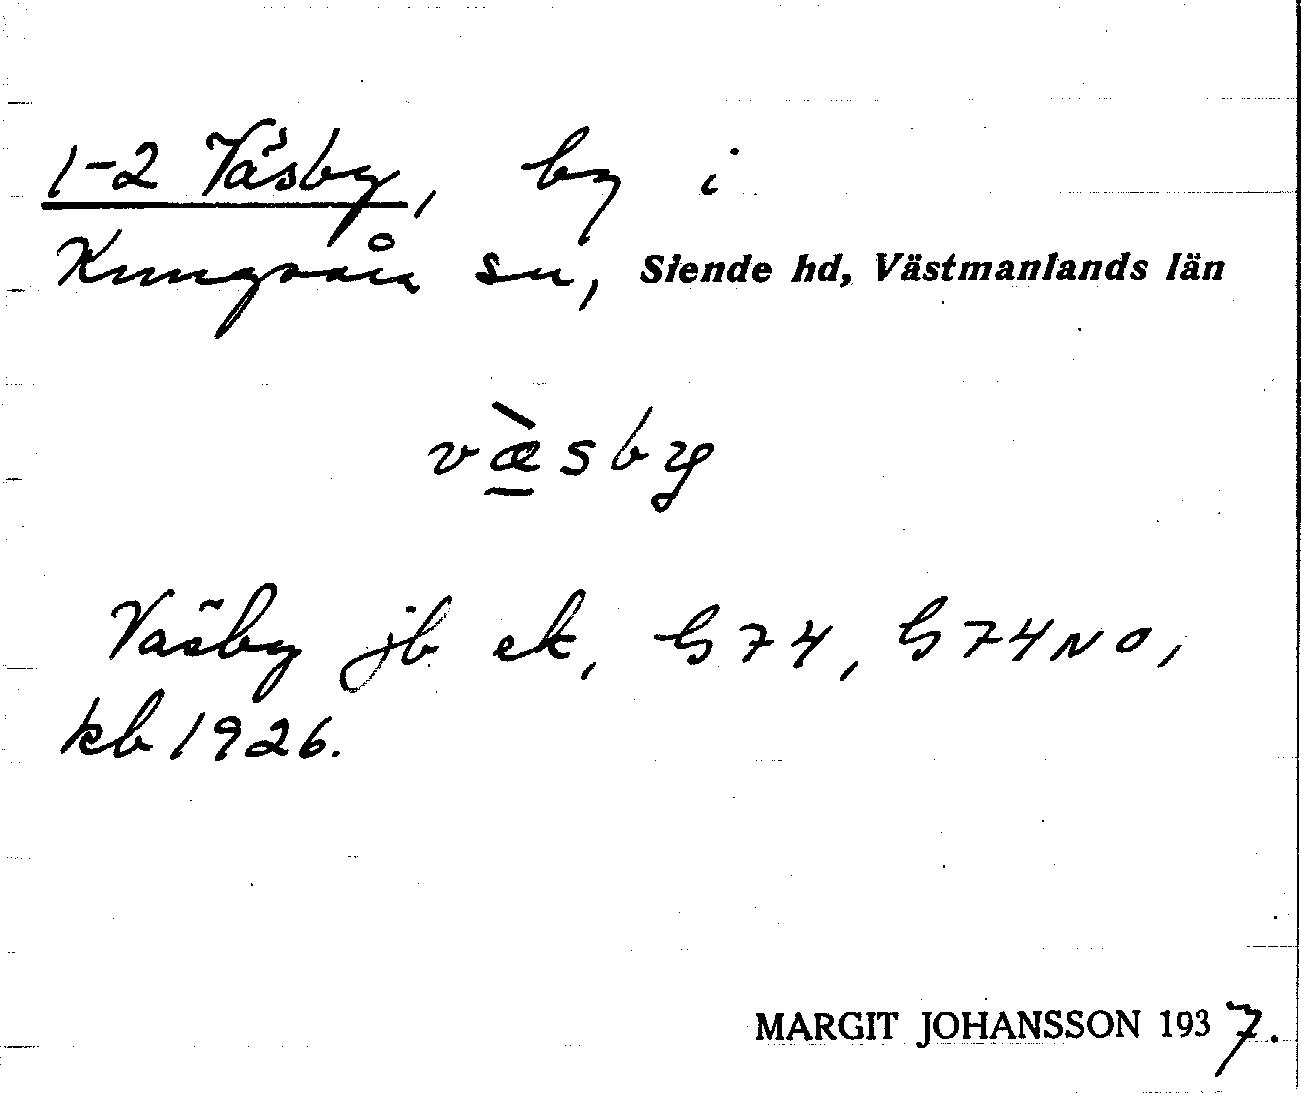 1-2 Väsby, by i
Kungsåra sn, Siende hd, Västmanlands län
væ̱̀sby
Väsby jb ek, G74, G74NO,
kb 1926.
MARGIT JOHANSSON 1937.